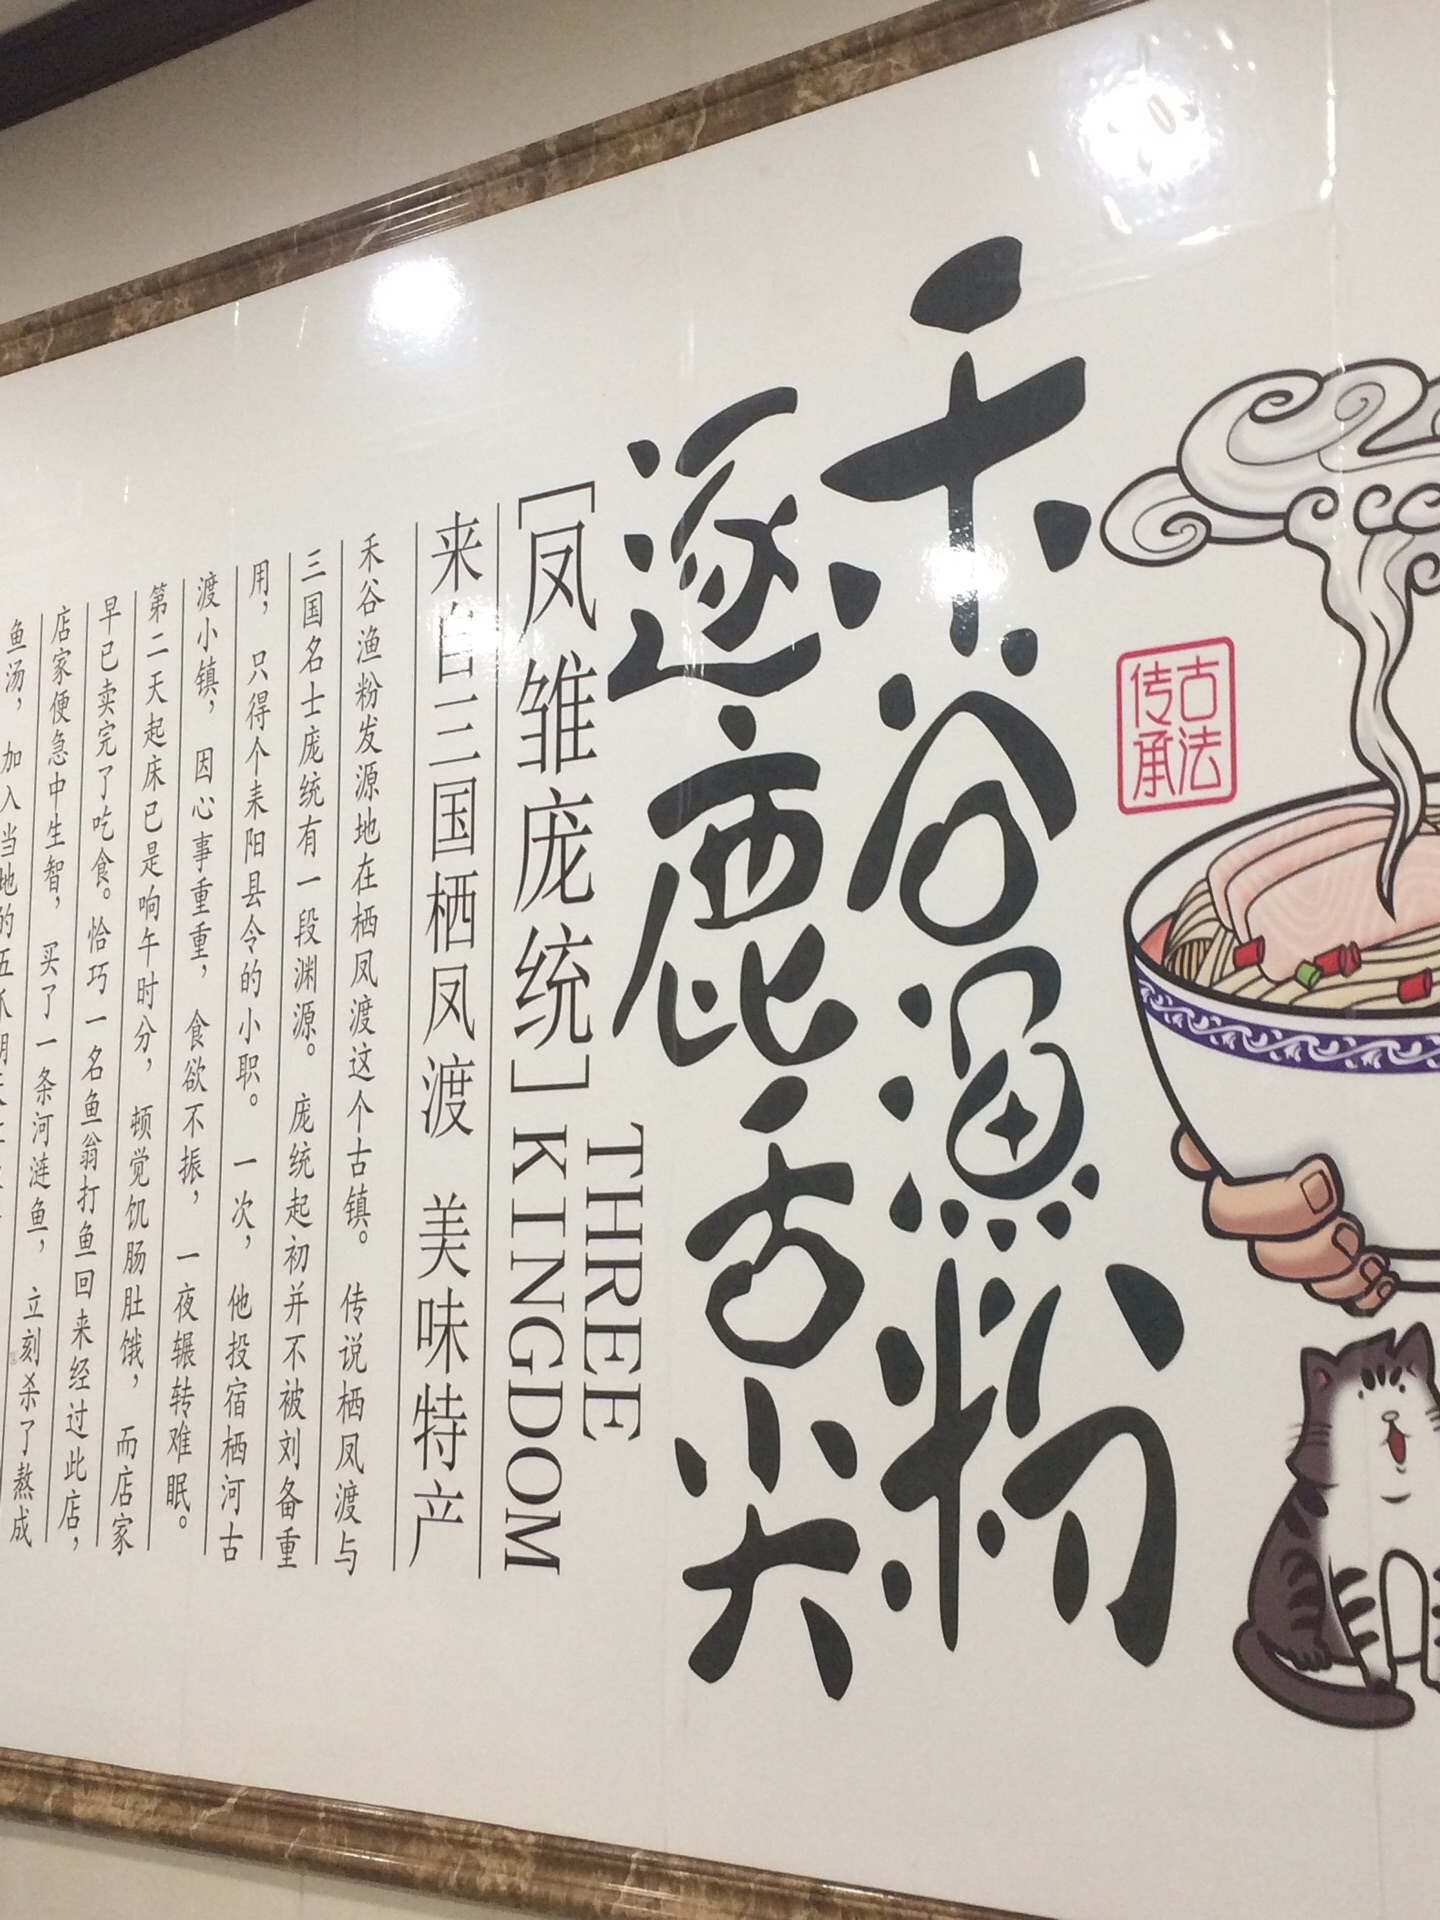 古法
传承
禾谷渔粉
逐鹿舌尖
THREE
[凤雏庞统]KINGDOM
来自三国栖凤渡 美味特产
禾谷渔粉发源地在栖凤渡这个古镇。传说栖凤渡与
三国名士庞统有一段渊源。庞统起初并不被刘备重
用，只得个耒阳县令的小职。一次，他投宿栖河古
渡小镇，因心事重重，食欲不振，一夜辗转难眠。
第二天起床已是响午时分，顿觉饥肠肚饿，而店家
早已卖完了吃食。恰巧一名鱼翁打鱼回来经过此店，
店家便急中生智，买了一条河涟鱼，立刻杀了熬成
鱼汤，加入当地的五爪